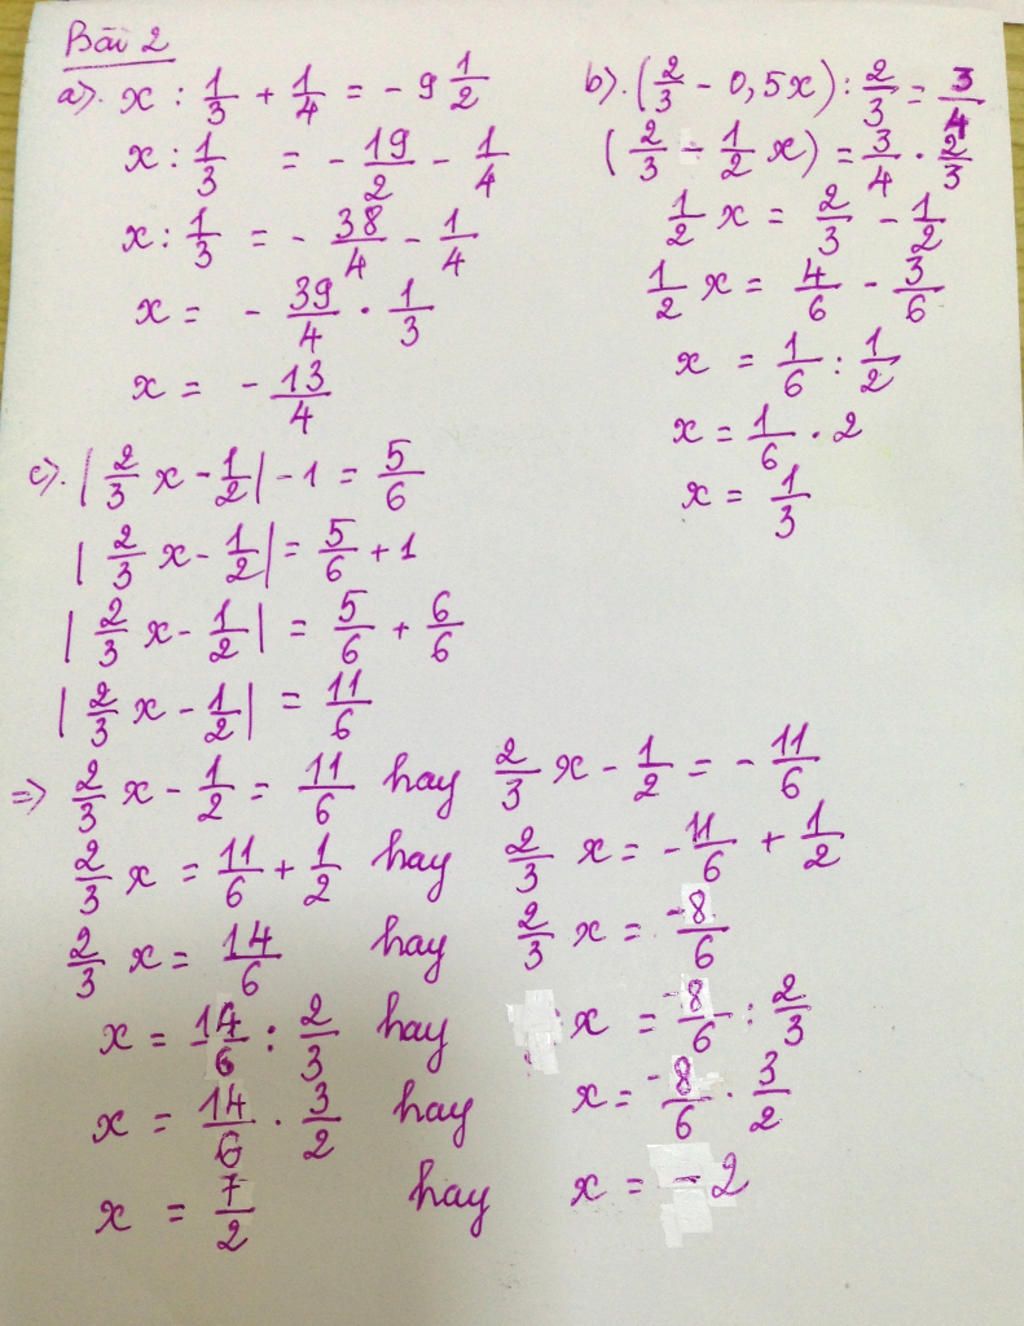 Bài 2
a). x : 1/3 + 1/4 = - 9 1/2
x : 1/3 = - 19/2 - 1/4
x : 1/3 = - 38/4 - 1/4
x = - 39/4 . 1/3
x = - 13/4
b). (2/3 - 0,5x) : 2/3 = 3/4
(2/3 - 1/2 x) = 3/4 . 2/3
1/2 x = 2/3 - 1/2
1/2 x = 4/6 - 3/6
x = 1/6 : 1/2
x = 1/6 . 2
x = 1/3
c). | 2/3 x - 1/2 | - 1 = 5/6
| 2/3 x - 1/2 | = 5/6 + 1
| 2/3 x - 1/2 | = 5/6 + 6/6
| 2/3 x - 1/2 | = 11/6
=> 2/3 x - 1/2 = 11/6 hay 2/3 x - 1/2 = - 11/6
2/3 x = 11/6 + 1/2 hay 2/3 x = - 11/6 + 1/2
2/3 x = 14/6 hay 2/3 x = -8/6
x = 14/6 : 2/3 hay x = -8/6 : 2/3
x = 14/6 . 3/2 hay x = -8/6 . 3/2
x = 7/2 hay x = - 2